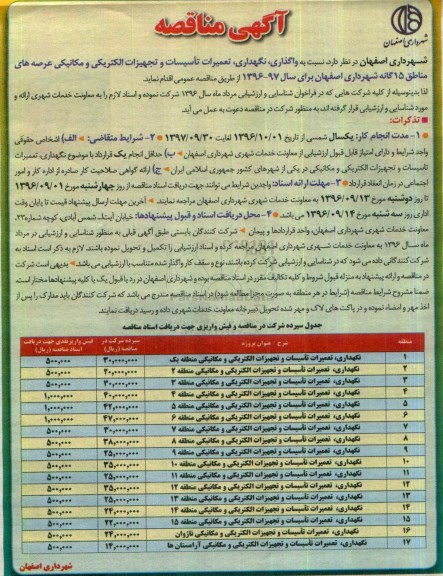 آگهی مناقصه
شهرداری اصفهان
شهرداری اصفهان در نظر دارد، نسبت به واگذاری، نگهداری، تعمیرات تأسیسات و تجهیزات الکتریکی و مکانیکی عرصه های
مناطق ۱۵گانه شهرداری اصفهان برای سال ۹۷-۱۳۹۶ از طریق مناقصه عمومی اقدام نماید.
لذا بدینوسیله از کلیه شرکت هایی که در فراخوان شناسایی و ارزشیابی مرداد ماه سال ۱۳۹۶ شرکت نموده و اسناد لازم را به معاونت خدمات شهری ارائه و
مورد شناسایی و ارزشیابی قرار گرفته اند، به منظور شرکت در مناقصه دعوت به عمل می آید.
تذکرات:
۱- مدت انجام کار: یکسال شمسی از تاریخ ۱۳۹۶/۱۰/۰۱ لغایت ۱۳۹۷/۰۹/۳۰ ۲- شرایط متقاضی: الف) اشخاص حقوقی
واجد شرایط و دارای امتیاز قابل قبول ارزشیابی از معاونت خدمات شهری شهرداری اصفهان ب) حداقل انجام یک قرارداد با موضوع نگهداری، تعمیرات
تاسیسات و تجهیزات الکتریکی و مکانیکی در یکی از شهرهای کشور جمهوری اسلامی ایران ج) ارائه گواهی صلاحیت کار صادره از اداره کار و امور
اجتماعی در زمان انعقاد قرارداد ۳- مهلت ارائه اسناد: واجدین شرایط می توانند جهت دریافت اسناد مناقصه از روز چهارشنبه مورخ ۱۳۹۶/۰۹/۰۱
تا روز دوشنبه مورخ ۱۳۹۶/۰۹/۱۳ به معاونت خدمات شهری شهرداری اصفهان مراجعه نمایند. آخرین مهلت ارسال پیشنهاد قیمت تا پایان وقت
اداری روز سه شنبه مورخ ۱۳۹۶/۰۹/۱۴ می باشد ۴- محل دریافت اسناد و قبول پیشنهادها: خیابان آیت ا... شمس آبادی، کوچه شماره ۲۳،
معاونت خدمات شهری شهرداری اصفهان، واحد قراردادها و پیمان شرکت کنندگان بایستی طبق آگهی قبلی به منظور شناسایی و ارزشیابی در مرداد
ماه سال ۱۳۹۶ به معاونت خدمات شهری شهرداری اصفهان مراجعه کرده و اسناد ارزشیابی را تکمیل و تحویل نموده باشند. لازم به ذکر است اسناد به
شرکت کنندگانی داده می شود که در شناسایی و ارزشیابی شرکت کرده باشند، نوع و سقف کار واگذار شده متناسب با ارزشیابی می باشد. بدیهی است شرکت
در مناقصه و ارائه پیشنهاد به منزله قبول شروط و کلیه تکالیف مقرر در اسناد مناقصه بوده و شهرداری اصفهان در رد یا قبول یک یا کلیه پیشنهادها مختار است.
ضمنا مشروح شرایط مناقصه (شرایط در هر منطقه به صورت مجزا مطالعه شود) در اسناد مناقصه مندرج می باشد که شرکت کنندگان باید مدارک را پس از
اخذ مهر و امضاء نموده و در پاکت های لاک و مهر شده تحویل دبیرخانه معاونت خدمات شهری داده و رسید دریافت نمایند.
جدول سپرده شرکت در مناقصه و فیش واریزی جهت دریافت اسناد مناقصه
منطقه شرح / عنوان پروژه سپرده شرکت در مناقصه (ریال) فیش واریز نقدی جهت دریافت اسناد مناقصه (ریال)
۱ نگهداری، تعمیرات تأسیسات و تجهیزات الکتریکی و مکانیکی منطقه یک ۳۰,۰۰۰,۰۰۰ ۵۰۰,۰۰۰
۲ نگهداری، تعمیرات تأسیسات و تجهیزات الکتریکی و مکانیکی منطقه ۲ ۲۰,۰۰۰,۰۰۰ ۵۰۰,۰۰۰
۳ نگهداری، تعمیرات تأسیسات و تجهیزات الکتریکی و مکانیکی منطقه ۳ ۳۰,۰۰۰,۰۰۰ ۵۰۰,۰۰۰
۴ نگهداری، تعمیرات تأسیسات و تجهیزات الکتریکی و مکانیکی منطقه ۴ ۴۰,۰۰۰,۰۰۰ ۱,۰۰۰,۰۰۰
۵ نگهداری، تعمیرات تأسیسات و تجهیزات الکتریکی و مکانیکی منطقه ۵ ۴۲,۰۰۰,۰۰۰ ۱,۰۰۰,۰۰۰
۶ نگهداری، تعمیرات تأسیسات و تجهیزات الکتریکی و مکانیکی منطقه ۶ ۴۷,۰۰۰,۰۰۰ ۱,۰۰۰,۰۰۰
۷ نگهداری، تعمیرات تأسیسات و تجهیزات الکتریکی و مکانیکی منطقه ۷ ۳۰,۰۰۰,۰۰۰ ۵۰۰,۰۰۰
۸ نگهداری، تعمیرات تأسیسات و تجهیزات الکتریکی و مکانیکی منطقه ۸ ۳۸,۰۰۰,۰۰۰ ۵۰۰,۰۰۰
۹ نگهداری، تعمیرات تأسیسات و تجهیزات الکتریکی و مکانیکی منطقه ۹ ۲۵,۰۰۰,۰۰۰ ۵۰۰,۰۰۰
۱۰ نگهداری، تعمیرات تأسیسات و تجهیزات الکتریکی و مکانیکی منطقه ۱۰ ۳۵,۰۰۰,۰۰۰ ۵۰۰,۰۰۰
۱۱ نگهداری، تعمیرات تأسیسات و تجهیزات الکتریکی و مکانیکی منطقه ۱۱ ۲۵,۰۰۰,۰۰۰ ۵۰۰,۰۰۰
۱۲ نگهداری، تعمیرات تأسیسات و تجهیزات الکتریکی و مکانیکی منطقه ۱۲ ۳۵,۰۰۰,۰۰۰ ۵۰۰,۰۰۰
۱۳ نگهداری، تعمیرات تأسیسات و تجهیزات الکتریکی و مکانیکی منطقه ۱۳ ۲۵,۰۰۰,۰۰۰ ۵۰۰,۰۰۰
۱۴ نگهداری، تعمیرات تأسیسات و تجهیزات الکتریکی و مکانیکی منطقه ۱۴ ۲۴,۰۰۰,۰۰۰ ۵۰۰,۰۰۰
۱۵ نگهداری، تعمیرات تأسیسات و تجهیزات الکتریکی و مکانیکی منطقه ۱۵ ۲۲,۰۰۰,۰۰۰ ۵۰۰,۰۰۰
۱۶ نگهداری، تعمیرات تأسیسات و تجهیزات الکتریکی و مکانیکی ناژوان ۲۴,۰۰۰,۰۰۰ ۵۰۰,۰۰۰
۱۷ نگهداری، تعمیرات تأسیسات و تجهیزات الکتریکی و مکانیکی آرامستان ها ۱۴,۰۰۰,۰۰۰ ۵۰۰,۰۰۰
شهرداری اصفهان